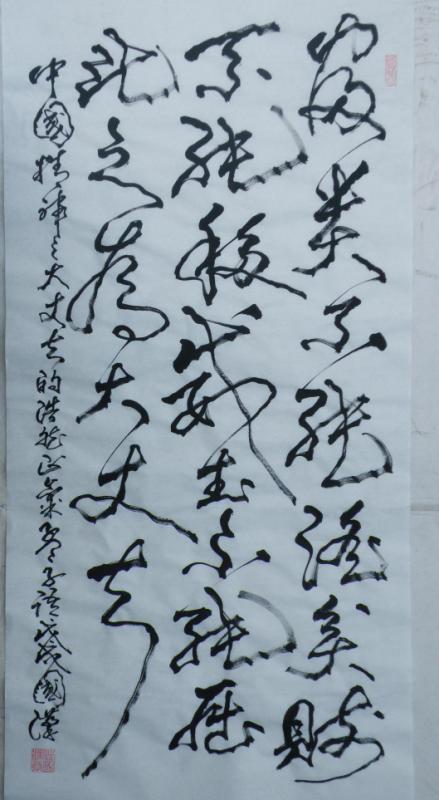 富貴不能淫貧賤
不能移威武不能屈
此之為大丈夫
中國精神之大丈夫的浩然正氣孟子語戊戌國漢